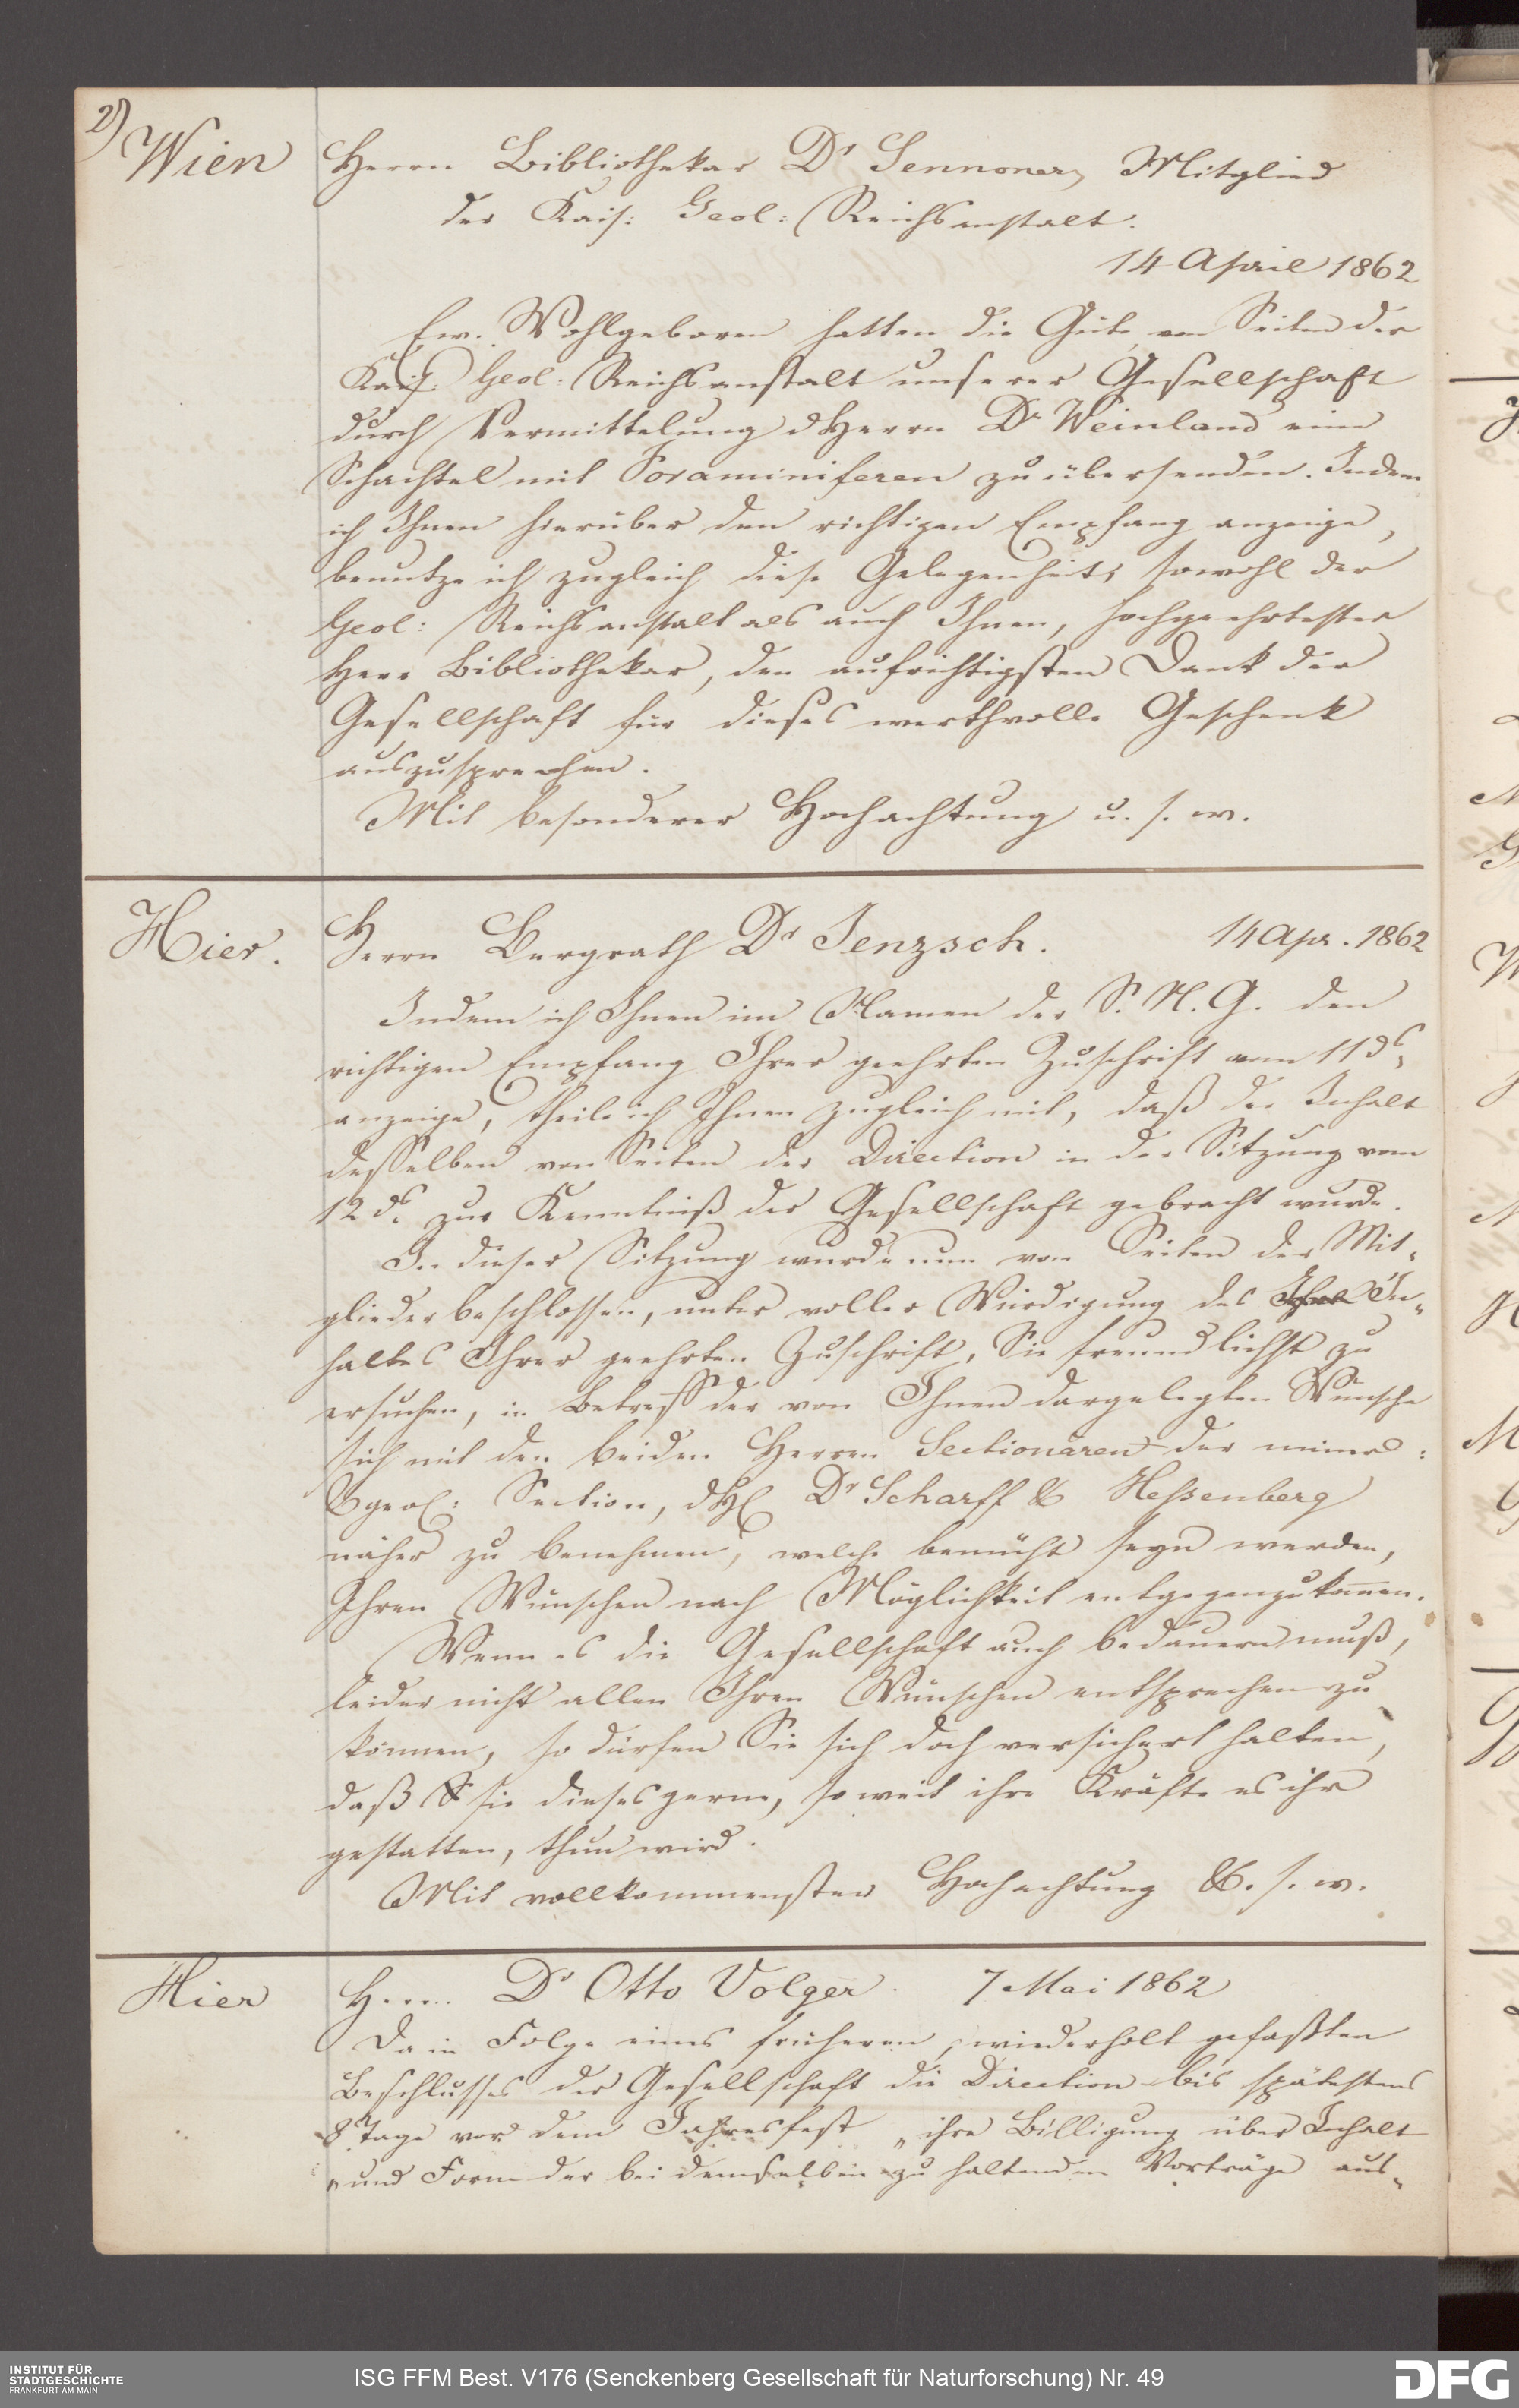 2)
Wien
Herrn Bibliothekar Dr Sennoner, Mitglied
der Kais: Geol: Reichsanstalt.
14 April 1862
Ew. Wohlgeboren hatten die Güte von Seiten der
Kais: Geol: Reichsanstalt unserer Gesellschaft
durch Vermittelung d Herrn Dr Weinland eine
Schachtel mit Foraminiferen zu übersenden. Indem
ich Ihnen hierüber den richtigen Empfang anzeige,
benutze ich zugleich diese Gelegenheit, sowohl der
Geol: Reichsanstalt als auch Ihnen, hochgeehrtester
Herr Bibliothekar, den aufrichtigsten Dank der
Gesellschaft für dieses werthvolle Geschenk
auszusprechen.
Mit besonderer Hochachtung u. s. w.
Hier.
Herrn Bergrath Dr Jenzsch. 14 Apr. 1862
Indem ich Ihnen im Namen der S. N. G. den
richtigen Empfang Ihrer geehrten Zuschrift vom 11 ds
anzeige, theile ich Ihnen zugleich mit, daß der Inhalt
desselben von Seiten der Direction in der Sitzung vom
12 ds zur Kenntniß der Gesellschaft gebracht wurde.
In dieser Sitzung wurde nun von Seiten der Mit-
glieder beschlossen, unter voller Würdigung des In-
haltes Ihrer geehrten Zuschrift, Sie freundlichst zu
ersuchen, in Betreff der von Ihnen dargelegten Wünsche
sich mit den beiden Herren Sectionären der miner:
& geol: Section, d HH Dr Scharff & Hessenberg
näher zu benehmen, welche bemüht seyn werden,
Ihren Wünschen nach Möglichkeit entgegenzukommen.
Wenn es die Gesellschaft auch bedauern muß,
leider nicht allen Ihren Wünschen entsprechen zu
können, so dürfen Sie sich doch versichert halten,
daß sie dieses gerne, so weit ihre Kräfte es ihr
gestatten, thun wird.
Mit vollkommenster Hochachtung &. s. w.
Hier
Herrn Dr Otto Volger. 7 Mai 1862
Da in Folge eines früheren, wiederholt gefaßten
Beschlusses der Gesellschaft die Direction bis spätestens
8 Tage vor dem Jahresfest „ihre Billigung über Inhalt
„und Form der bei demselben zu haltenden Vorträge aus-
INSTITUT FÜR
STADTGESCHICHTE
FRANKFURT AM MAIN
ISG FFM Best. V176 (Senckenberg Gesellschaft für Naturforschung) Nr. 49
DFG